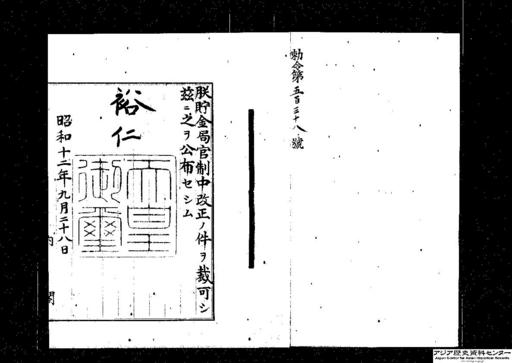 勅令第五百三十八號
朕貯金局官制中改正ノ件ヲ裁可シ
茲ニ之ヲ公布セシム
裕仁
天皇
御璽
昭和十二年九月二十八日
内閣
アジア歴史資料センター
Japan Center for Asian Historical Records